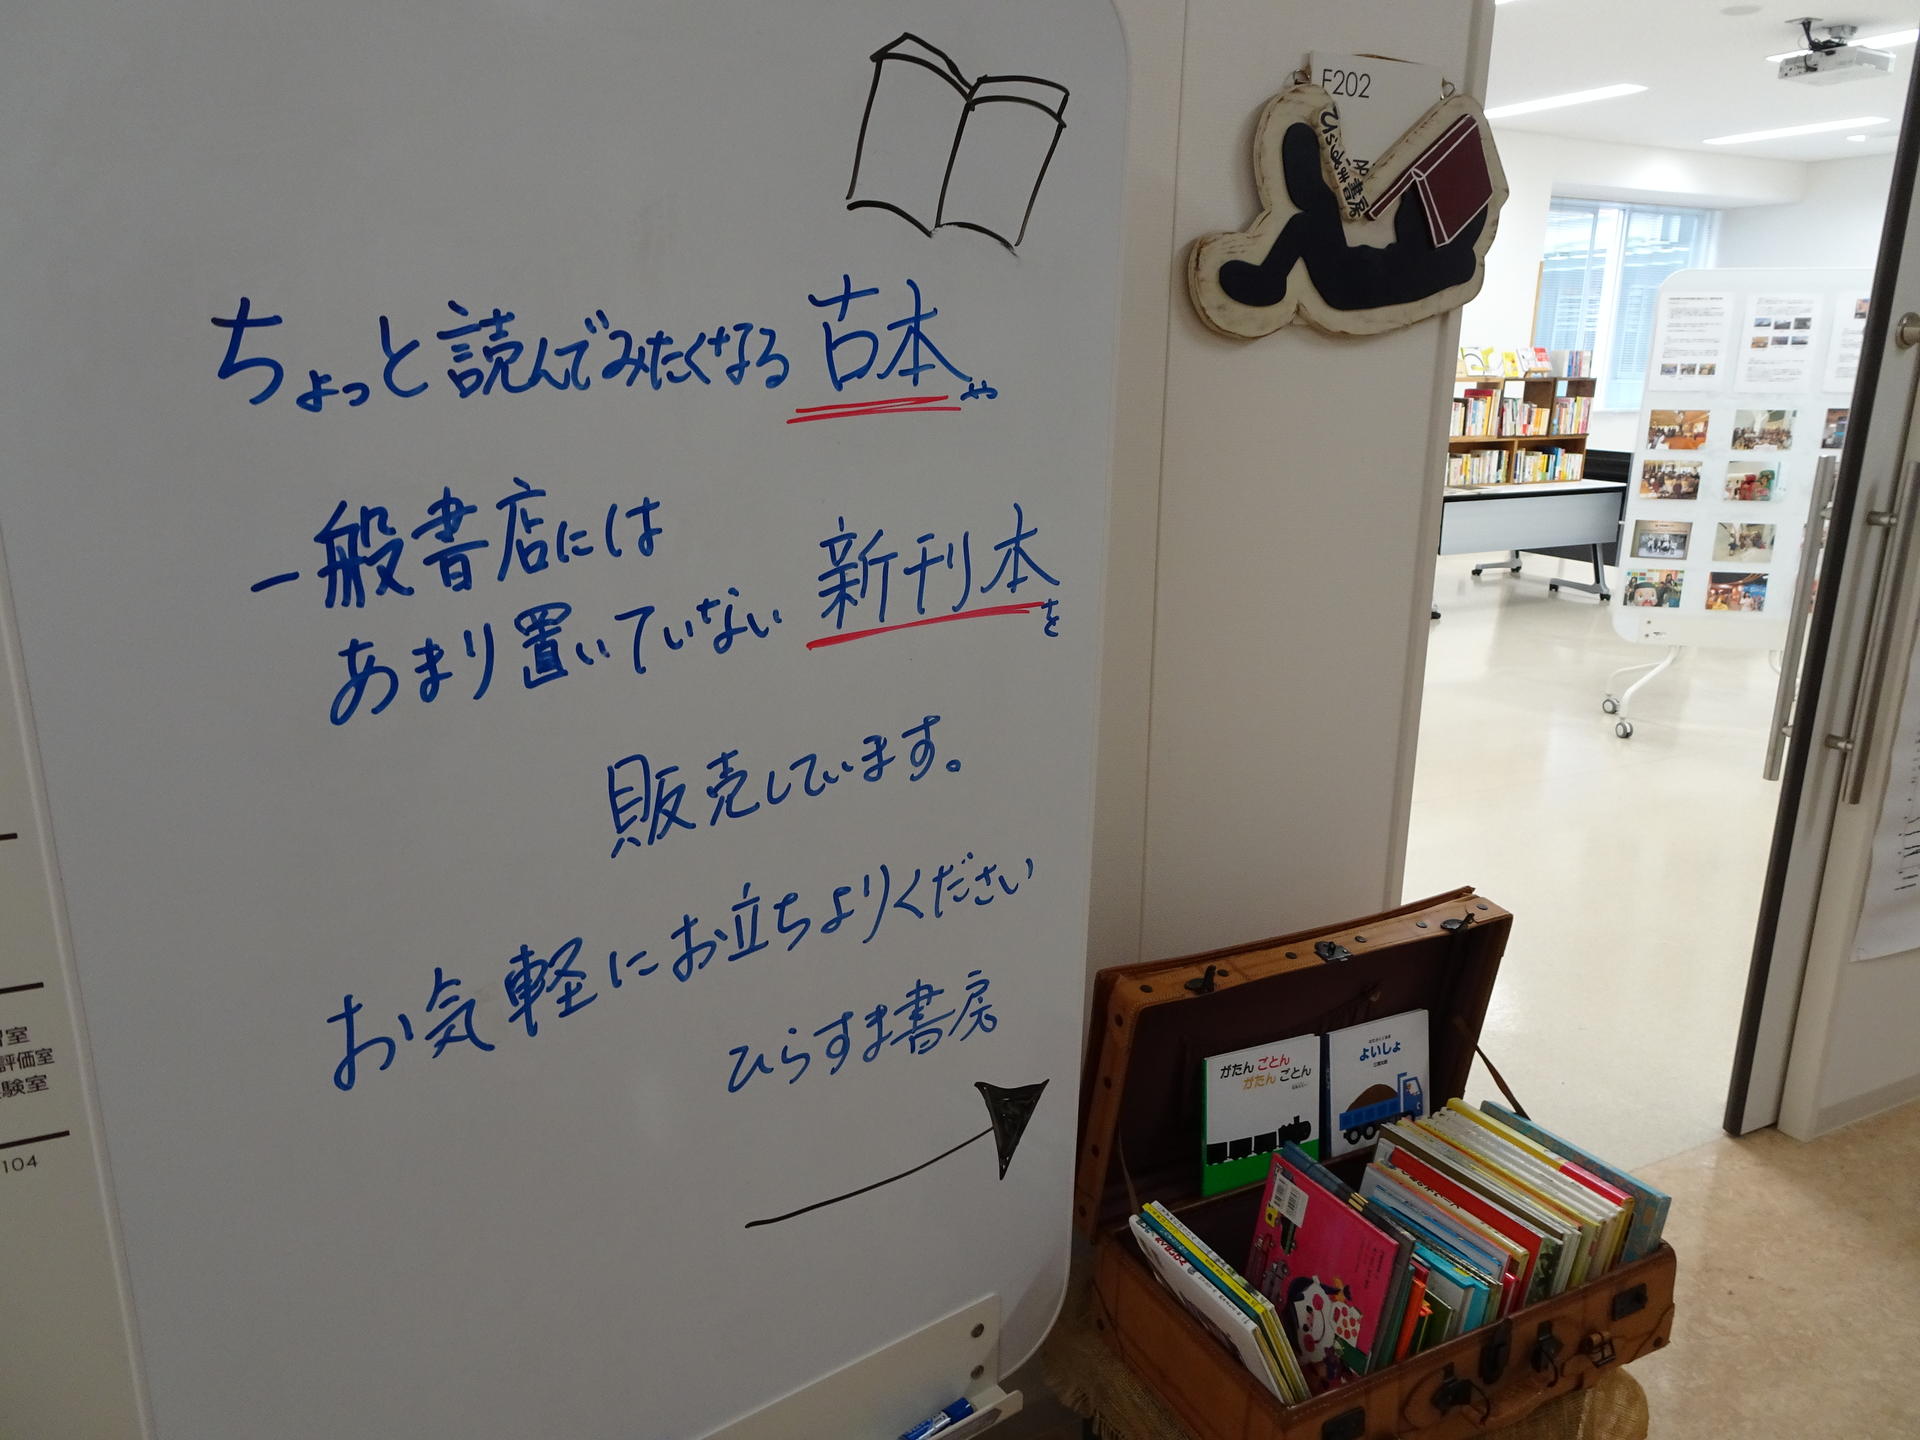 ちょっと読んでみたくなる古本や
一般書店には
あまり置いていない新刊本を
販売しています。
お気軽にお立ちよりください
ひらすま書房
E202
ひらすま書房
がたん ごとん
がたん ごとん
よいしょ
評価室
験室
104